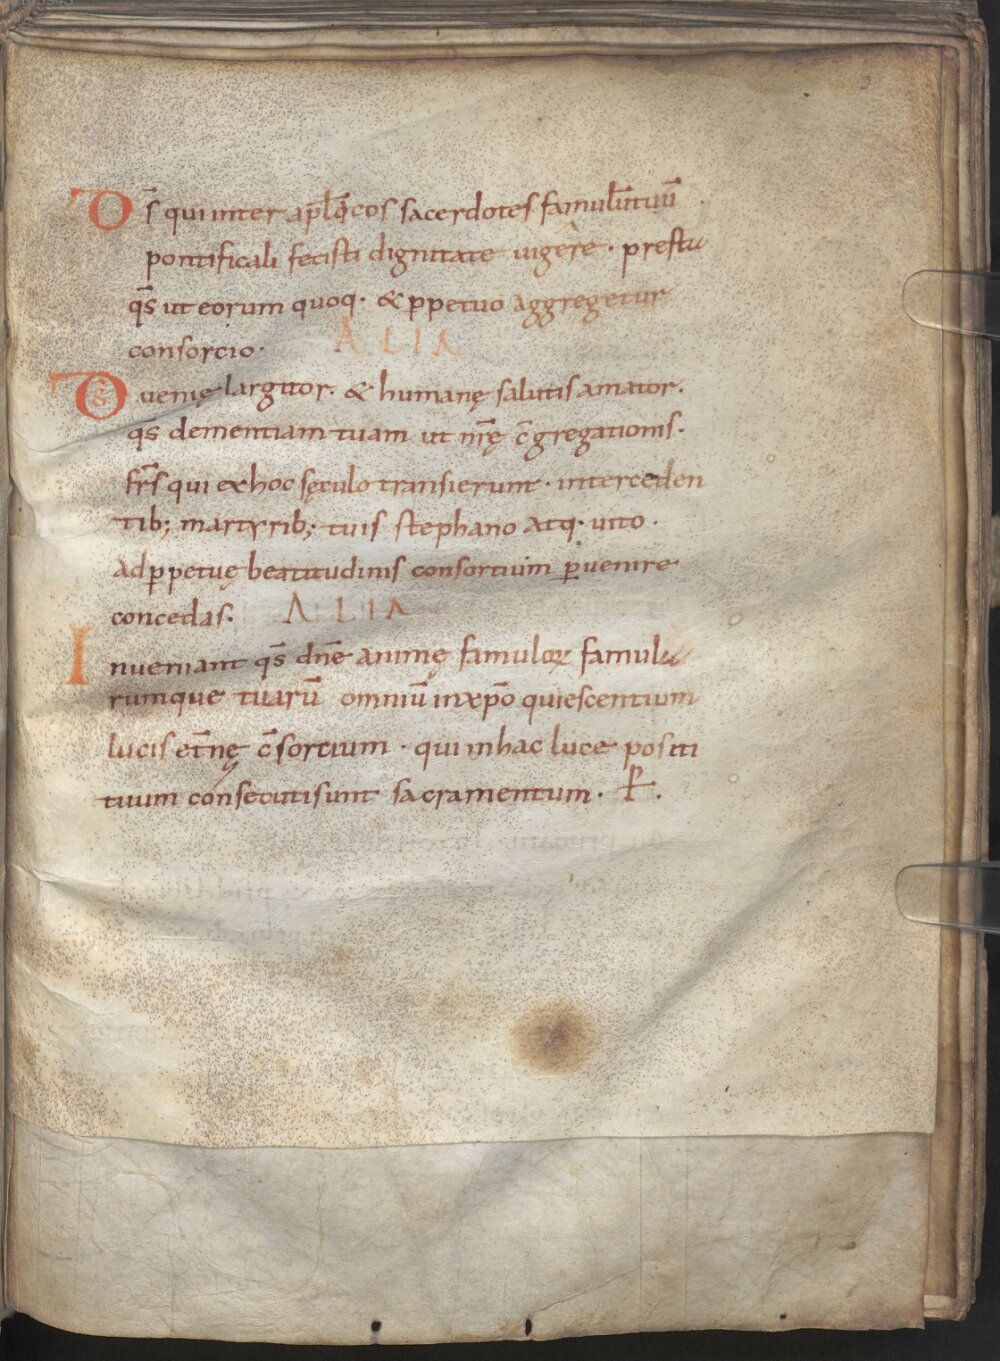 3
D̄s qui inter apl̄icos sacerdotes famulūm tuū
pontificali fecisti dignitate uigere · presta
qs̄ ut eorum quoq· & ꝑpetuo aggregetur
consorcio· ALIA
Ds̄ uenię largitor· & humanę salutis amator·
qs̄ clementiam tuam ut nr̄ę c̄gregationis·
fr̄s qui ex hoc sęculo transierunt · interceden
tib; martyrib; tuis stephano atq· uito ·
ad ꝑpetuę beatitudinis consortium ꝑuenire
concedas· ALIA
Inueniant qs̄ dn̄e animę famuloꝝ famula
rumque tuarū omniū in xp̄o quiescentium
lucis et̄nę c̄sortium · qui in hac luce positi
tuum consecuti sunt sacramentum · P̄.